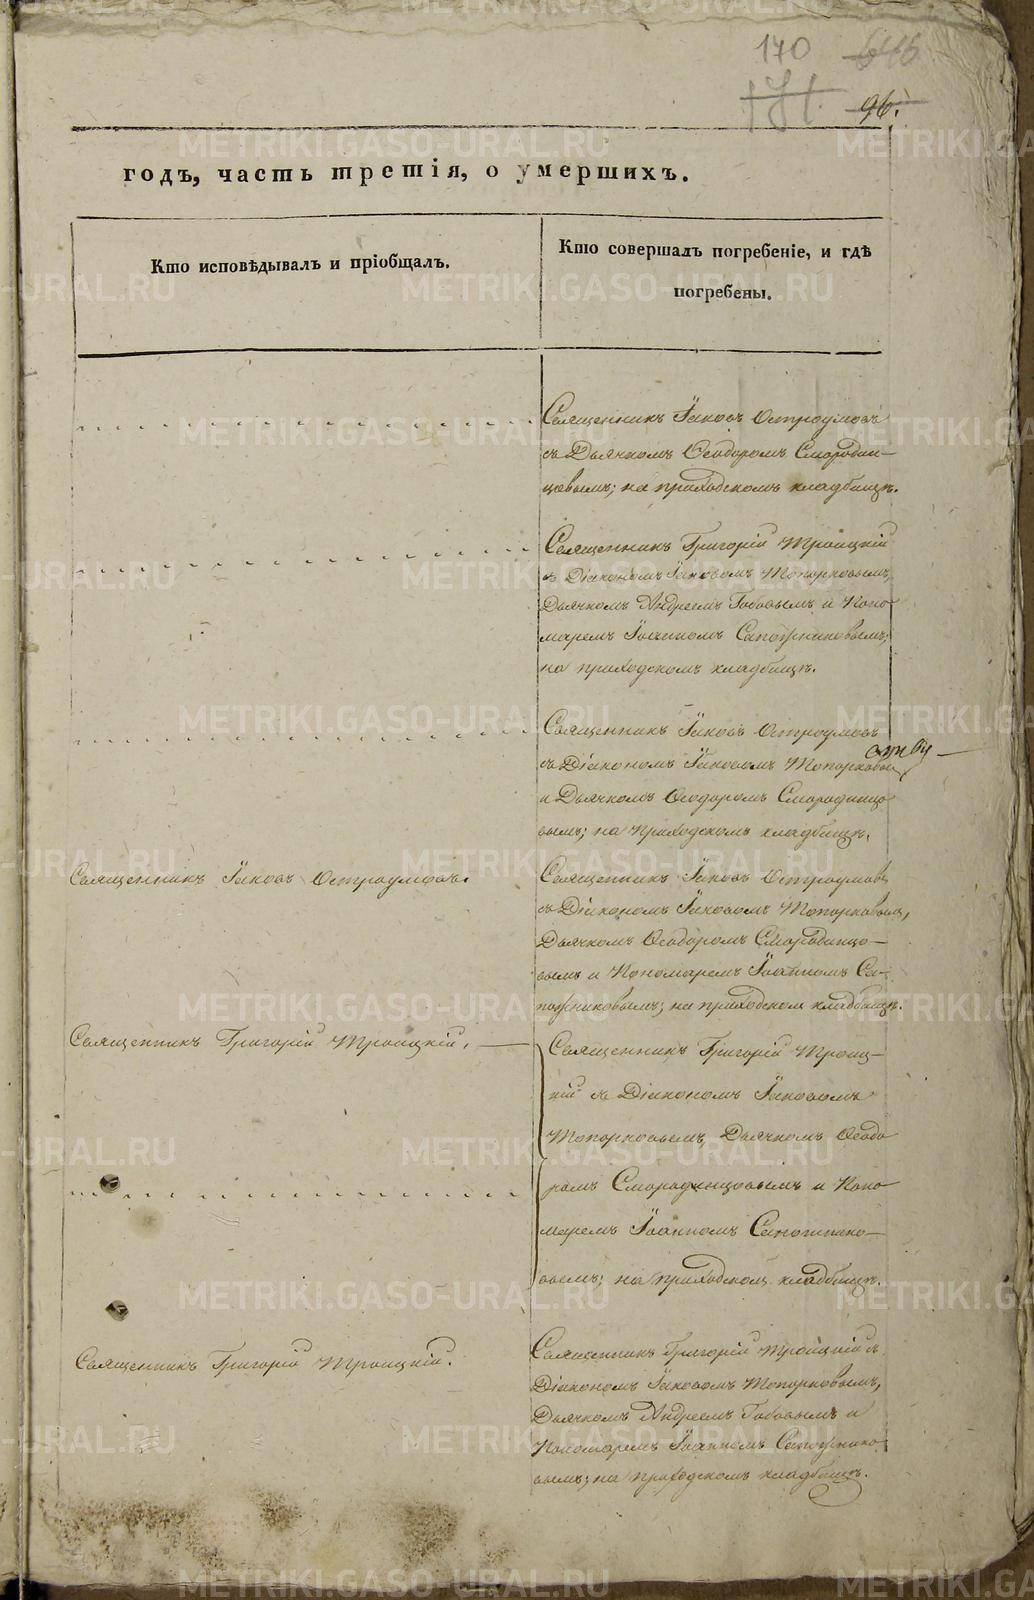 170 646
171. 96.
годъ, часть третія, о умершихъ.
Кто исповѣдывалъ и пріобщалъ.
Кто совершалъ погребеніе, и гдѣ
погребены.
Священникъ Іаковъ Остроумовъ
съ Дьячкомъ Ѳеодоромъ Смородин-
цовымъ; на приходскомъ кладбищѣ.
Священникъ Григорій Троицкій
съ Діакономъ Іаковомъ Топорковымъ,
Дьячкомъ Андреемъ Гобовымъ и Поно-
маремъ Іоанномъ Сапожниковымъ;
на приходскомъ кладбищѣ.
Священникъ Іаковъ Остроумовъ
съ Діакономъ Іаковомъ Топорковы
и Дьячкомъ Ѳеодоромъ Смородинцо
вымъ; на приходскомъ кладбищѣ.
Священникъ Іаковъ Остроумовъ.
Священникъ Іаковъ Остроумовъ
съ Діакономъ Іаковомъ Топорковымъ,
Дьячкомъ Ѳеодоромъ Смородинцо-
вымъ и Пономаремъ Іоанномъ Са-
пожниковымъ; на приходском кладбищѣ.
Священникъ Григорій Троицкій.
Священникъ Григорій Троиц-
кій съ Діакономъ Іаковомъ
Топорковымъ, Дьячкомъ Ѳеодо
ромъ Смородинцовымъ и Поно
маремъ Іоанномъ Сапожнико-
вымъ; на приходском кладбищѣ.
Священникъ Григорій Троицкій.
Священникъ Григорій Троицкій съ
Діакономъ Іаковомъ Топорковымъ,
Дьячкомъ Андреемъ Гобовымъ и
Пономаремъ Іоанномъ Сапожнико
вымъ; на приходскомъ кладбищѣ.
METRIKI.GASO-URAL.RU